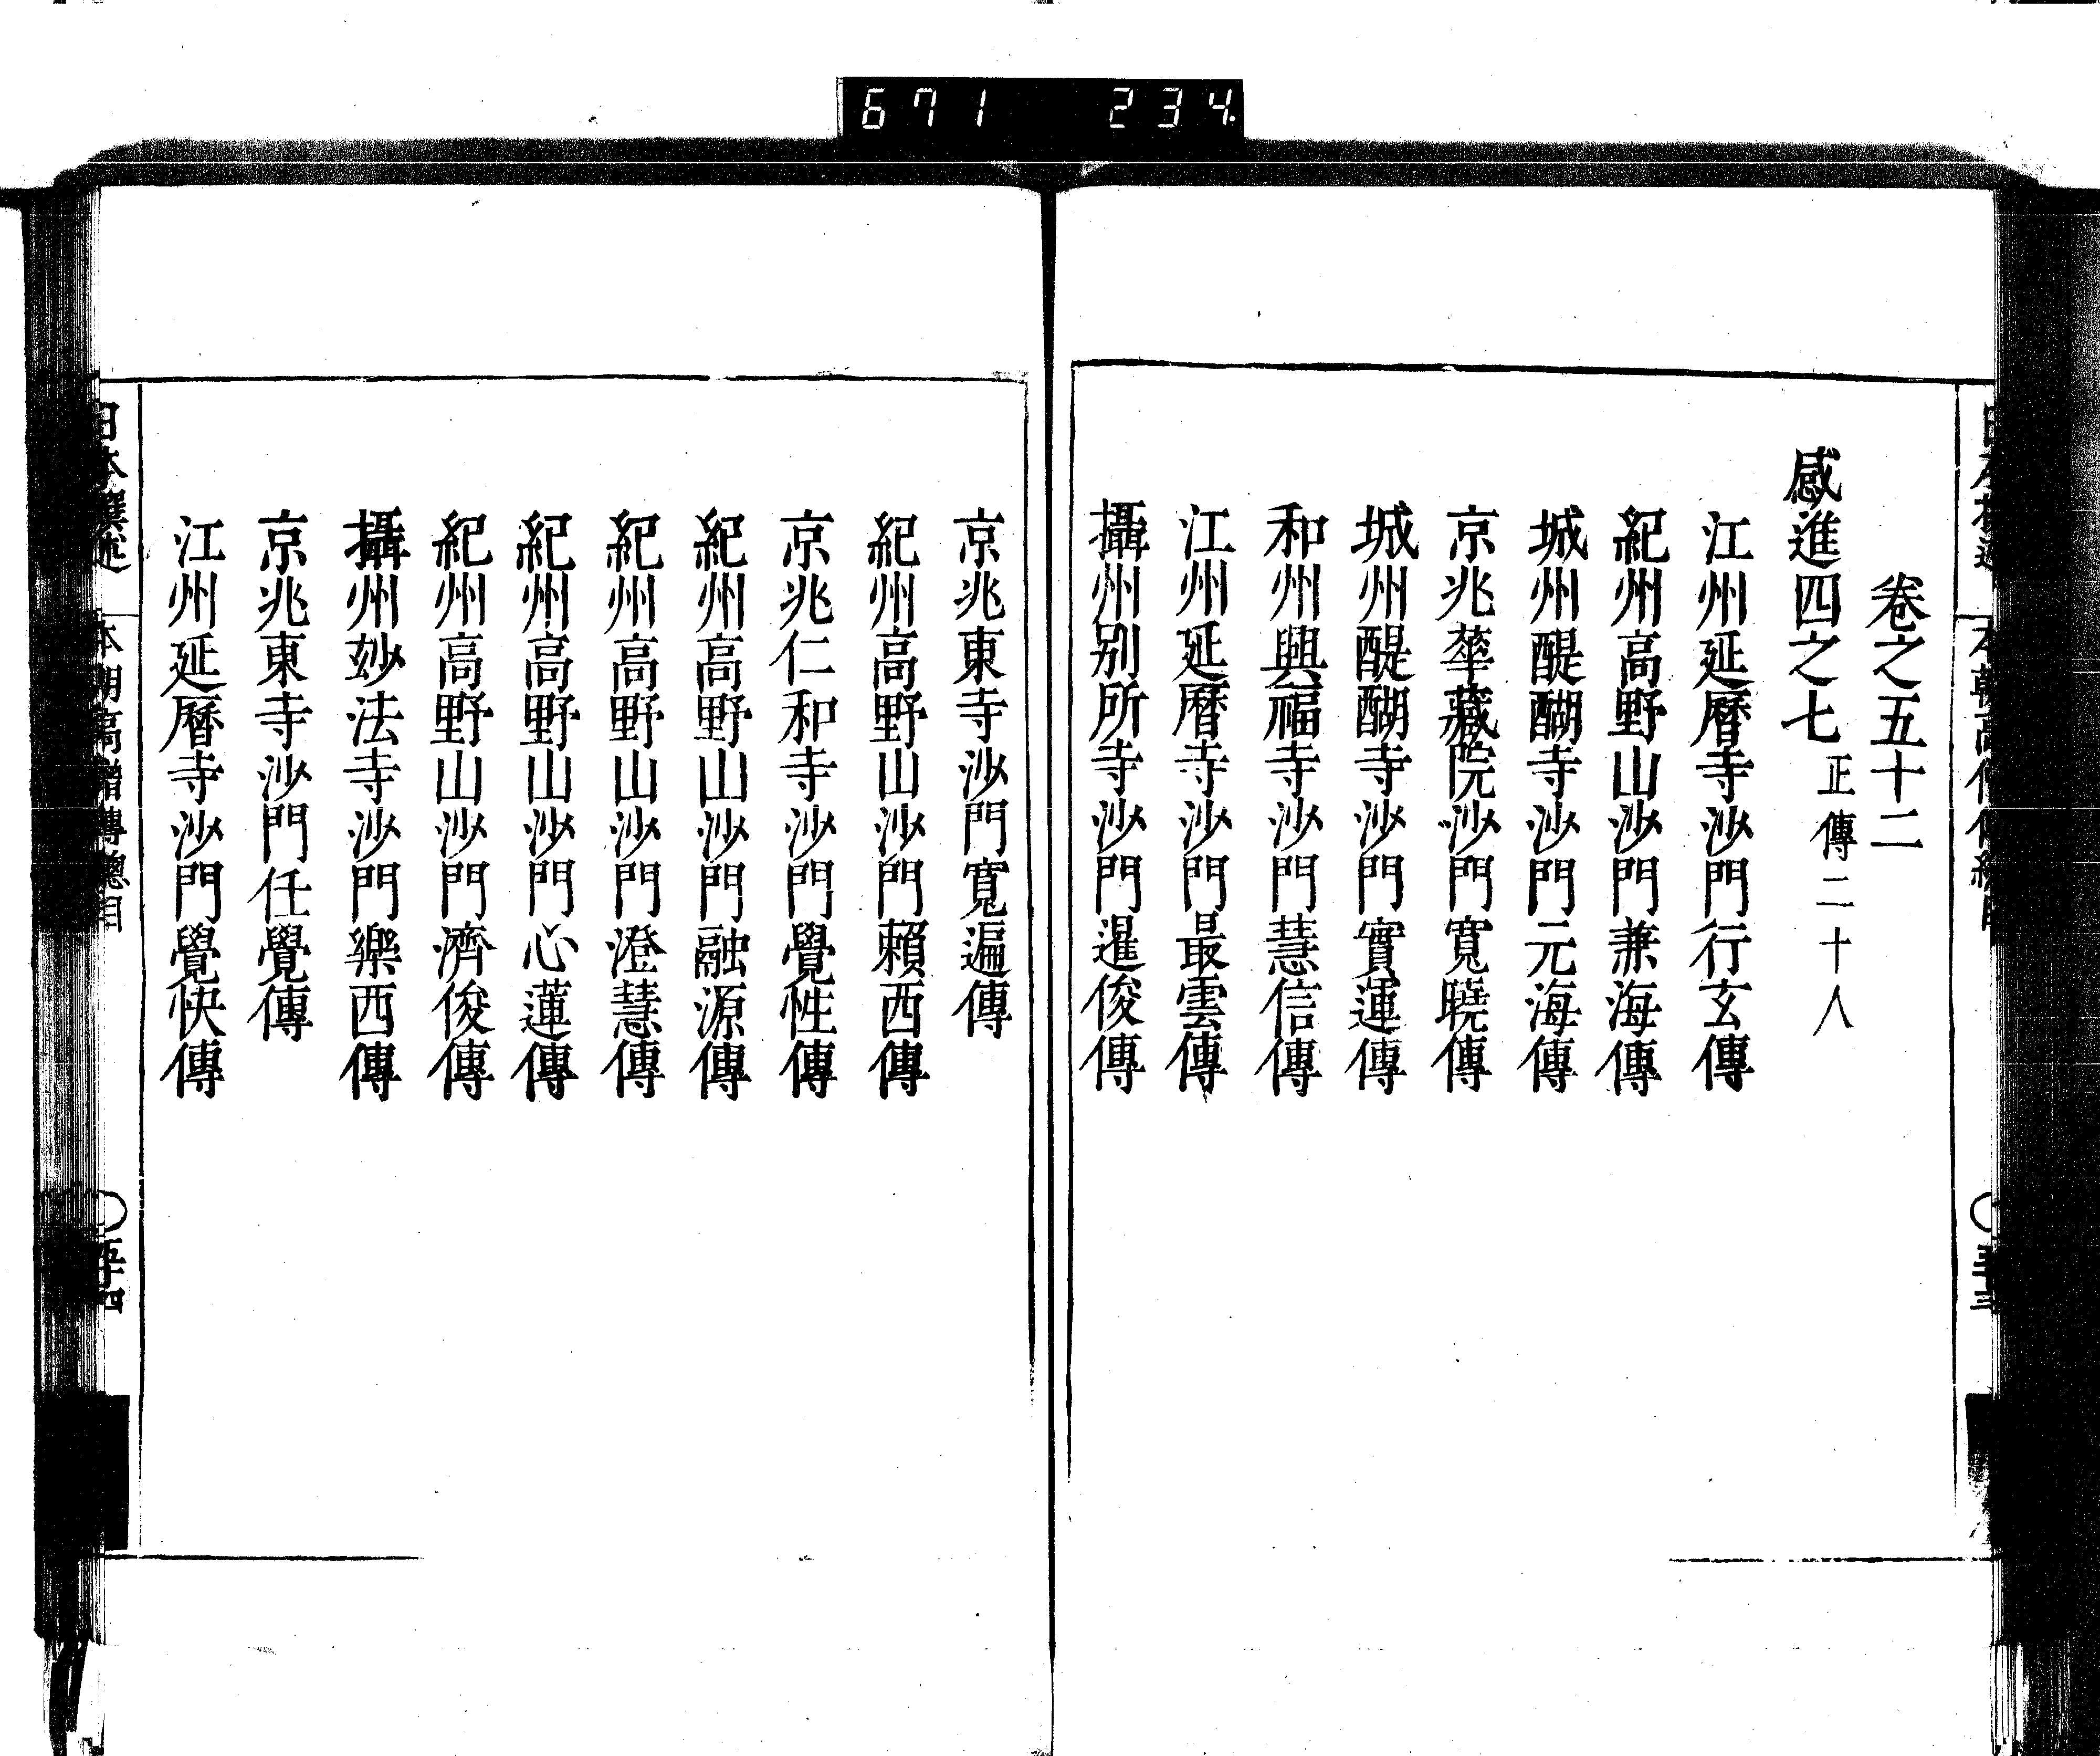 671 234
卷之五十二
感進四之七 正傳二十八
江州延曆寺沙門行玄傳
紀州高野山沙門兼海傳
城州醍醐寺沙門元海傳
京兆華藏院沙門寬曉傳
城州醍醐寺沙門實運傳
和州興福寺沙門慧信傳
江州延曆寺沙門最雲傳
攝州別所寺沙門暹俊傳
京兆東寺沙門寬遍傳
紀州高野山沙門賴西傳
京兆仁和寺沙門覺性傳
紀州高野山沙門融源傳
紀州高野山沙門澄慧傳
紀州高野山沙門心蓮傳
紀州高野山沙門濟俊傳
攝州玅法寺沙門樂西傳
京兆東寺沙門任覺傳
江州延曆寺沙門覺快傳
日本撰述 本朝高僧傳總目